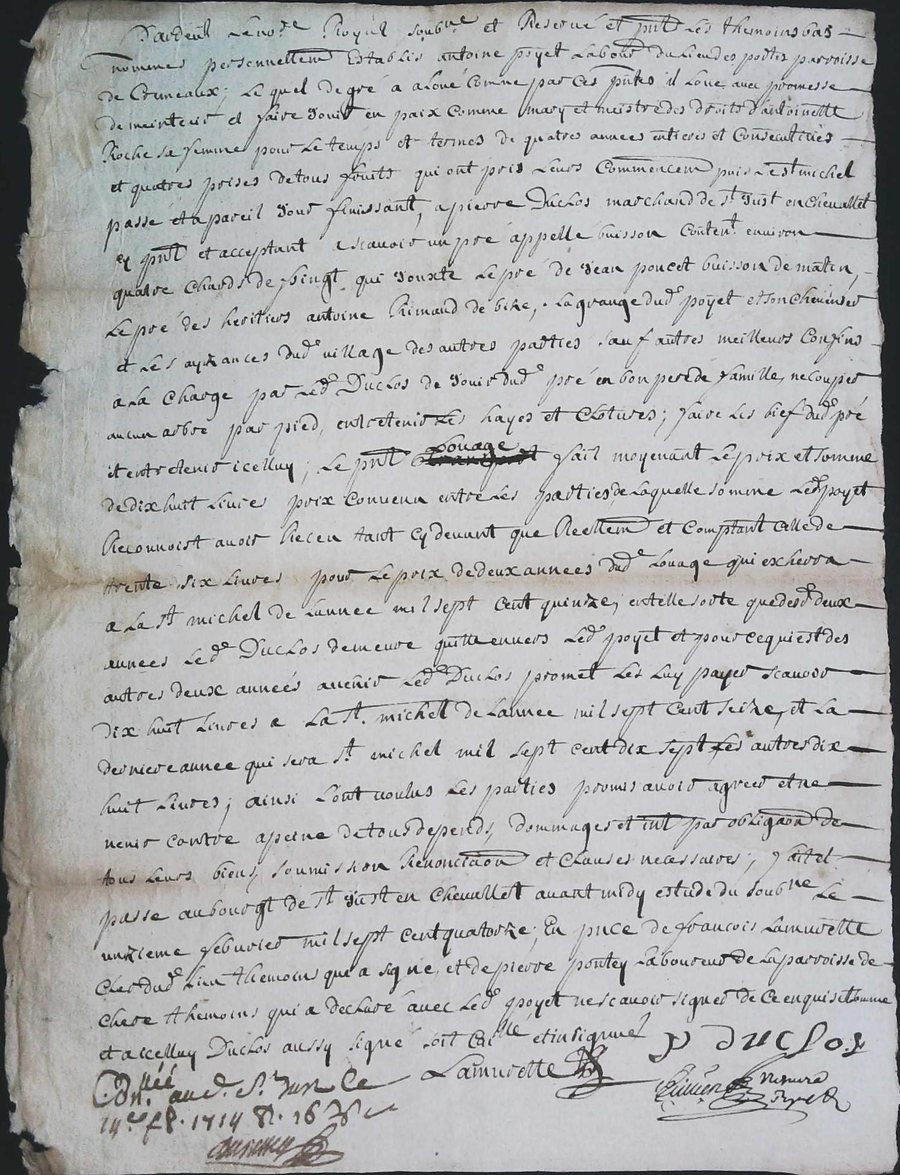 Pardevt Le no.re Royal Soub.ne et Reservé et pnt Les themoins bas
nommés personnellem Establis antoine poyet Labour du Lieu des pottes parroisse
de Cremeaux; Le quel de gré a aloué comme par ces pntes il Loue avec promesse
de meintenir et faire Jouir en paix comme mary et meistre des droits d'antoinette
Roche sa femme pour Le temps et termes de quatres années entieres et Consecutives
et quatres prises de tous fruits qui ont pris Leurs Commencem puis Le st michel
passé et a pareil Jour finissant, a pierre Duclos marchand de st Just en Chevallet
cy pnt et acceptant ascavoir un pré appellé buisson Content environ
quatre Chards de foingt qui Jouxte Le pré de Jean poncet buisson de matin,
Le pré des heritiers antoine Rimaud de bize, La grange dud. poyet et son cheminset
et Les ayzances dud. village des autres parties sauf autres meilleurs Confins
a La Charge par Led. Duclos de Jouir dud. pré en bon pere de famille, ne couper
aucun arbre par pied, entretenir Les hayes et Clotures; faire Les bief dud. pré
et entretenir icelluy; Le pnt Louage fait moyenant Le prix et somme
de dix huit Livres prix convenu entre Les parties de Laquelle somme Led. poyet
Reconnoist avoir Receu tant cy devant que Reellem et Comptant celle de
trente six Livres pour Le prix de deux années dud. Louage qui exherra
a La St. michel de Lannée mil sept cent quinze; en telle sorte que desd. deux
années Led. Duclos demeure quitte envers Led. poyet et pour ce qui est des
autres deux années avenir Led. Duclos promet Les Luy payer scavoir
Dix huit Livres a La St. michel de Lannée mil sept cent seize, et La
derniere année qui sera St. michel mil sept cent dix sept Les autres dix
huit Livres; ainsi Lont voulus Les parties promis avoir agreer et ne
venir contre a peine de tous depends, dommages et int par obligaon de
tous Leurs biens, soumission Renonciaon et Clauses necessaires; fait et
passé au bourgt de St. Just en Chevallet avant midy estude du Soub.ne Le
unzieme febvrier mil sept cent quatorze; En pnce de francois Lamurette
Clerc dud. Lieu themoins qui a signé, et de pierre pontey Laboureur de La parroisse de
Chere themoins qui a declaré avec Led. poyet ne scavoir signer de ce enquis et somme
et a icelluy Duclos aussy signé soit Con.llé et insignué
P DUCLOS
Lamurette
Con.llé au d. St. Just Le
14.e fb. 1714